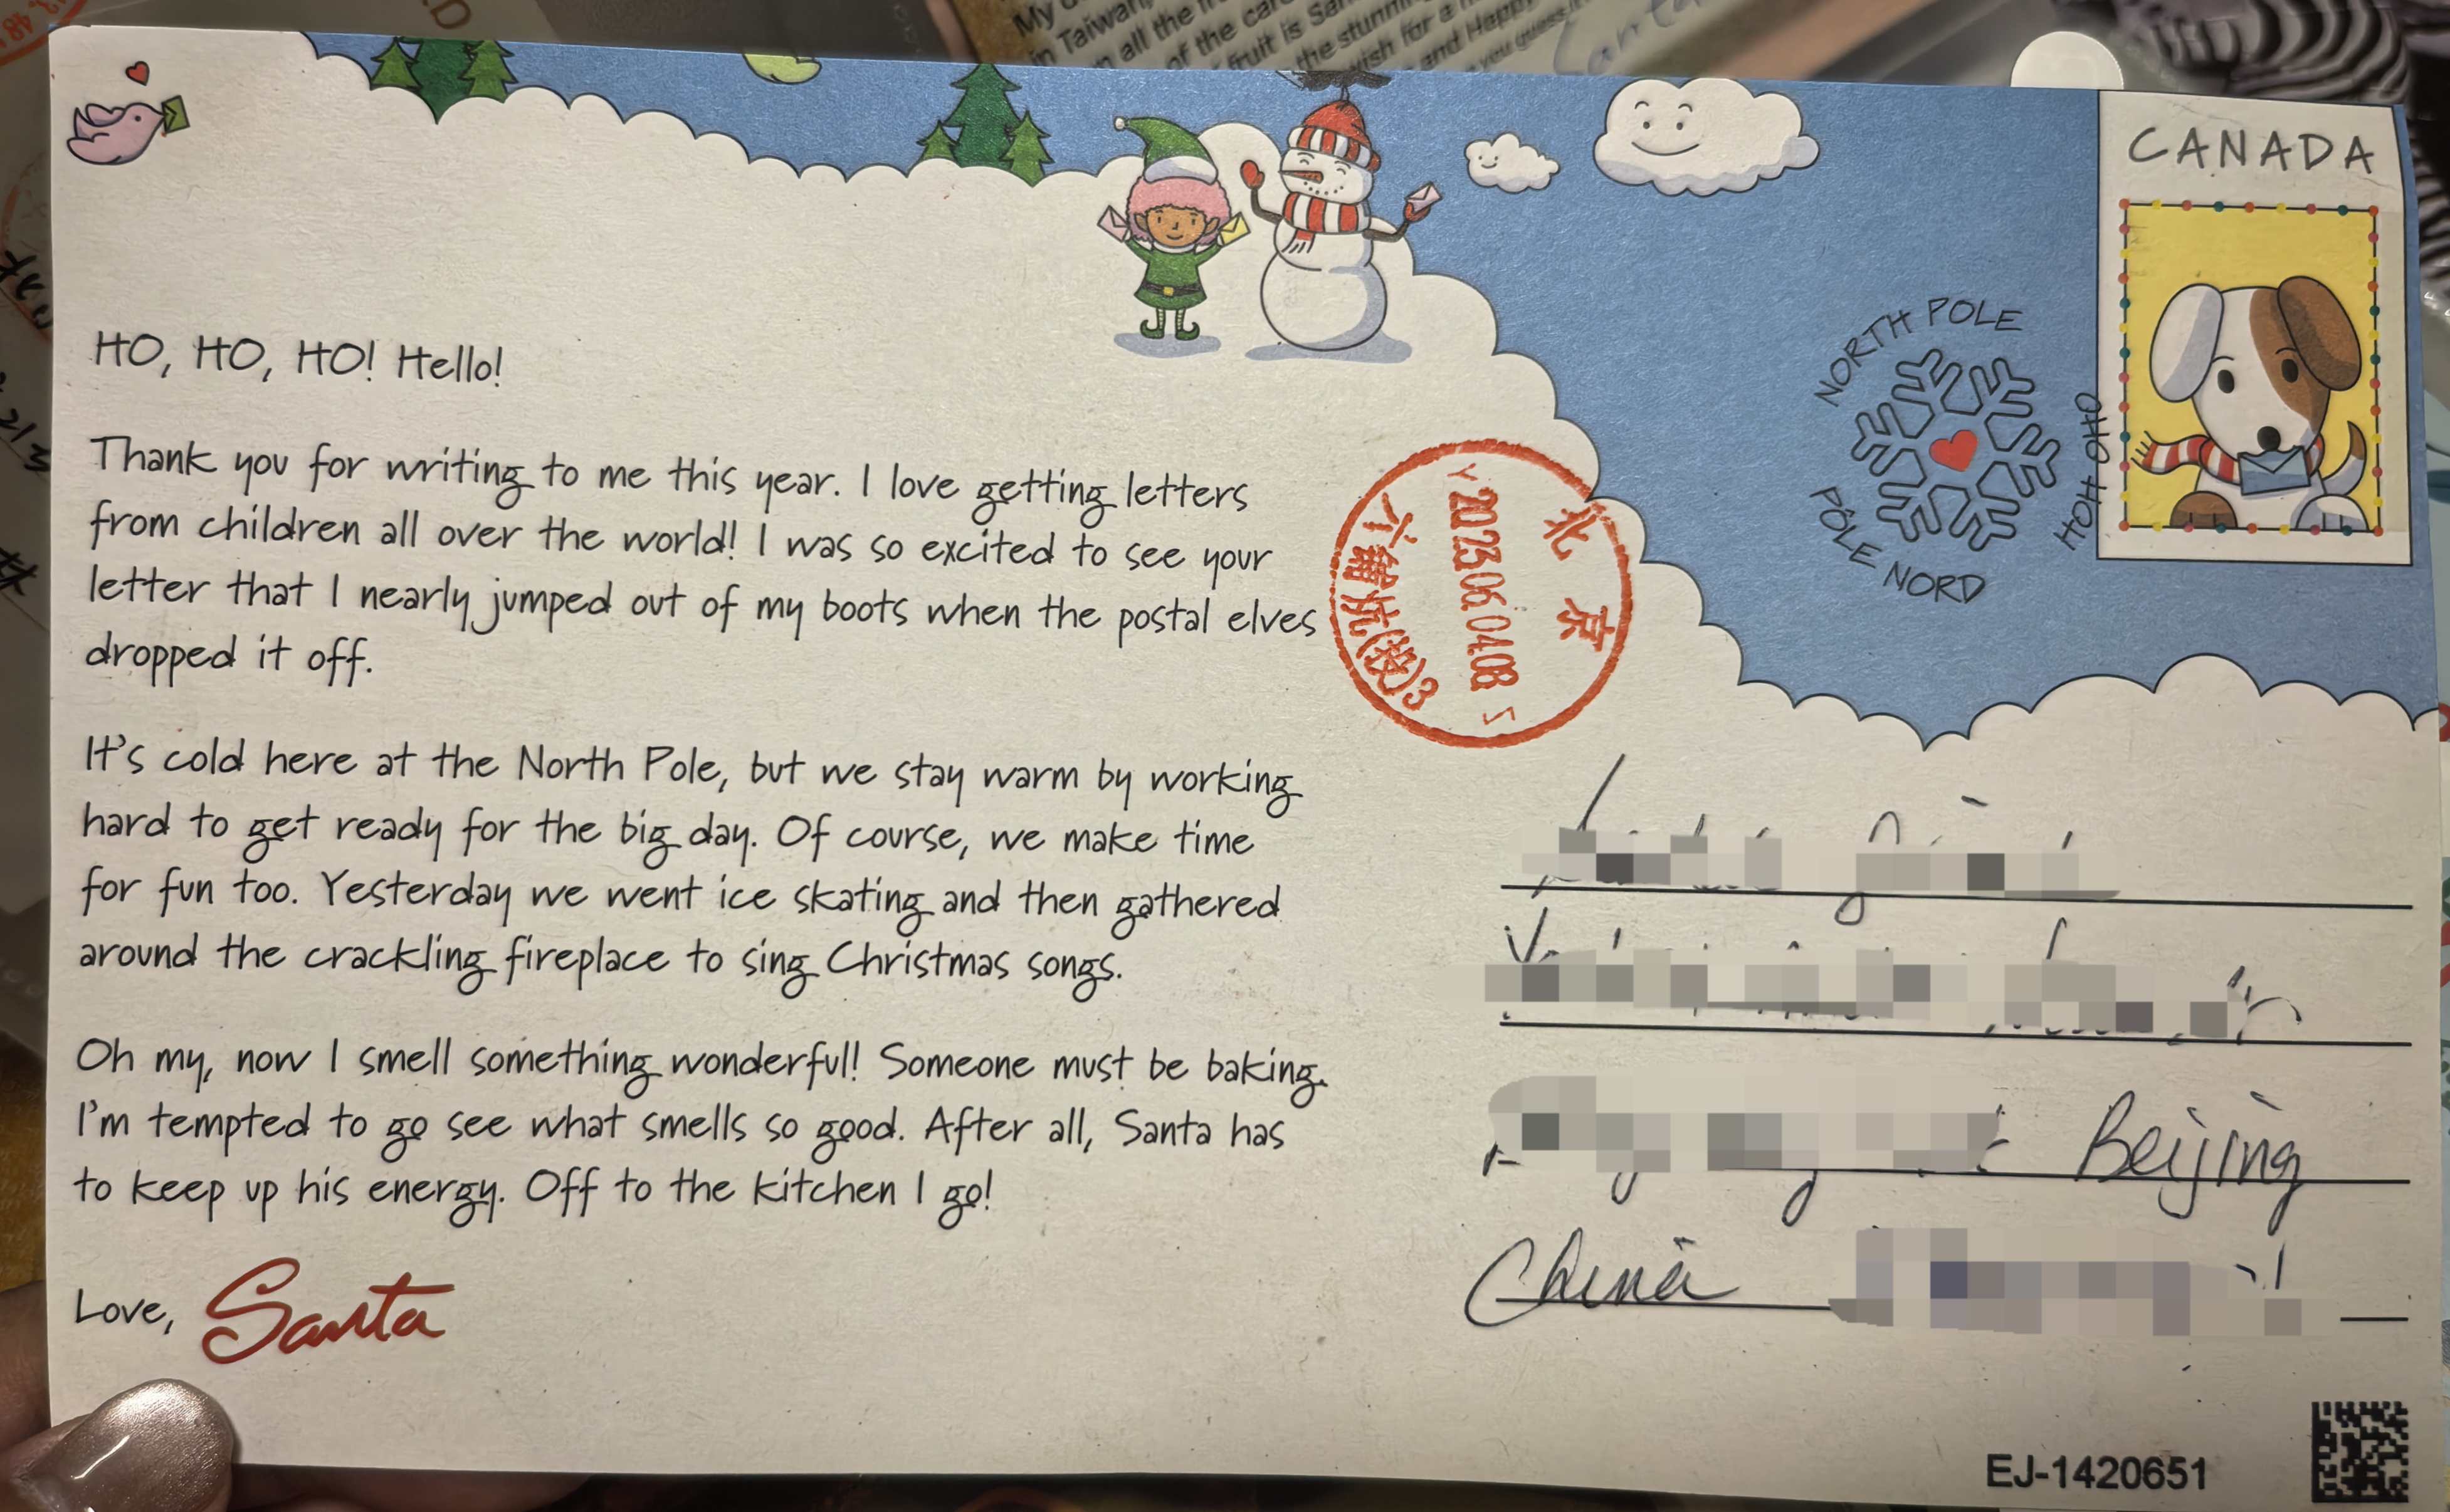 My
in Taiwan,
all the
of the car
fruit is San
the stunning
wish for a
and Happy
you guess it
CANADA
NORTH POLE
HOH OHO
PÔLE NORD
HO, HO, HO! Hello!
Thank you for writing to me this year. I love getting letters
from children all over the world! I was so excited to see your
letter that I nearly jumped out of my boots when the postal elves
dropped it off.
北京
2023.06.04.08
六铺炕(投)3
It's cold here at the North Pole, but we stay warm by working
hard to get ready for the big day. Of course, we make time
for fun too. Yesterday we went ice skating and then gathered
around the crackling fireplace to sing Christmas songs.
Oh my, now I smell something wonderful! Someone must be baking.
I'm tempted to go see what smells so good. After all, Santa has
to keep up his energy. Off to the kitchen I go!
Love, Santa
Beijing
China
EJ-1420651